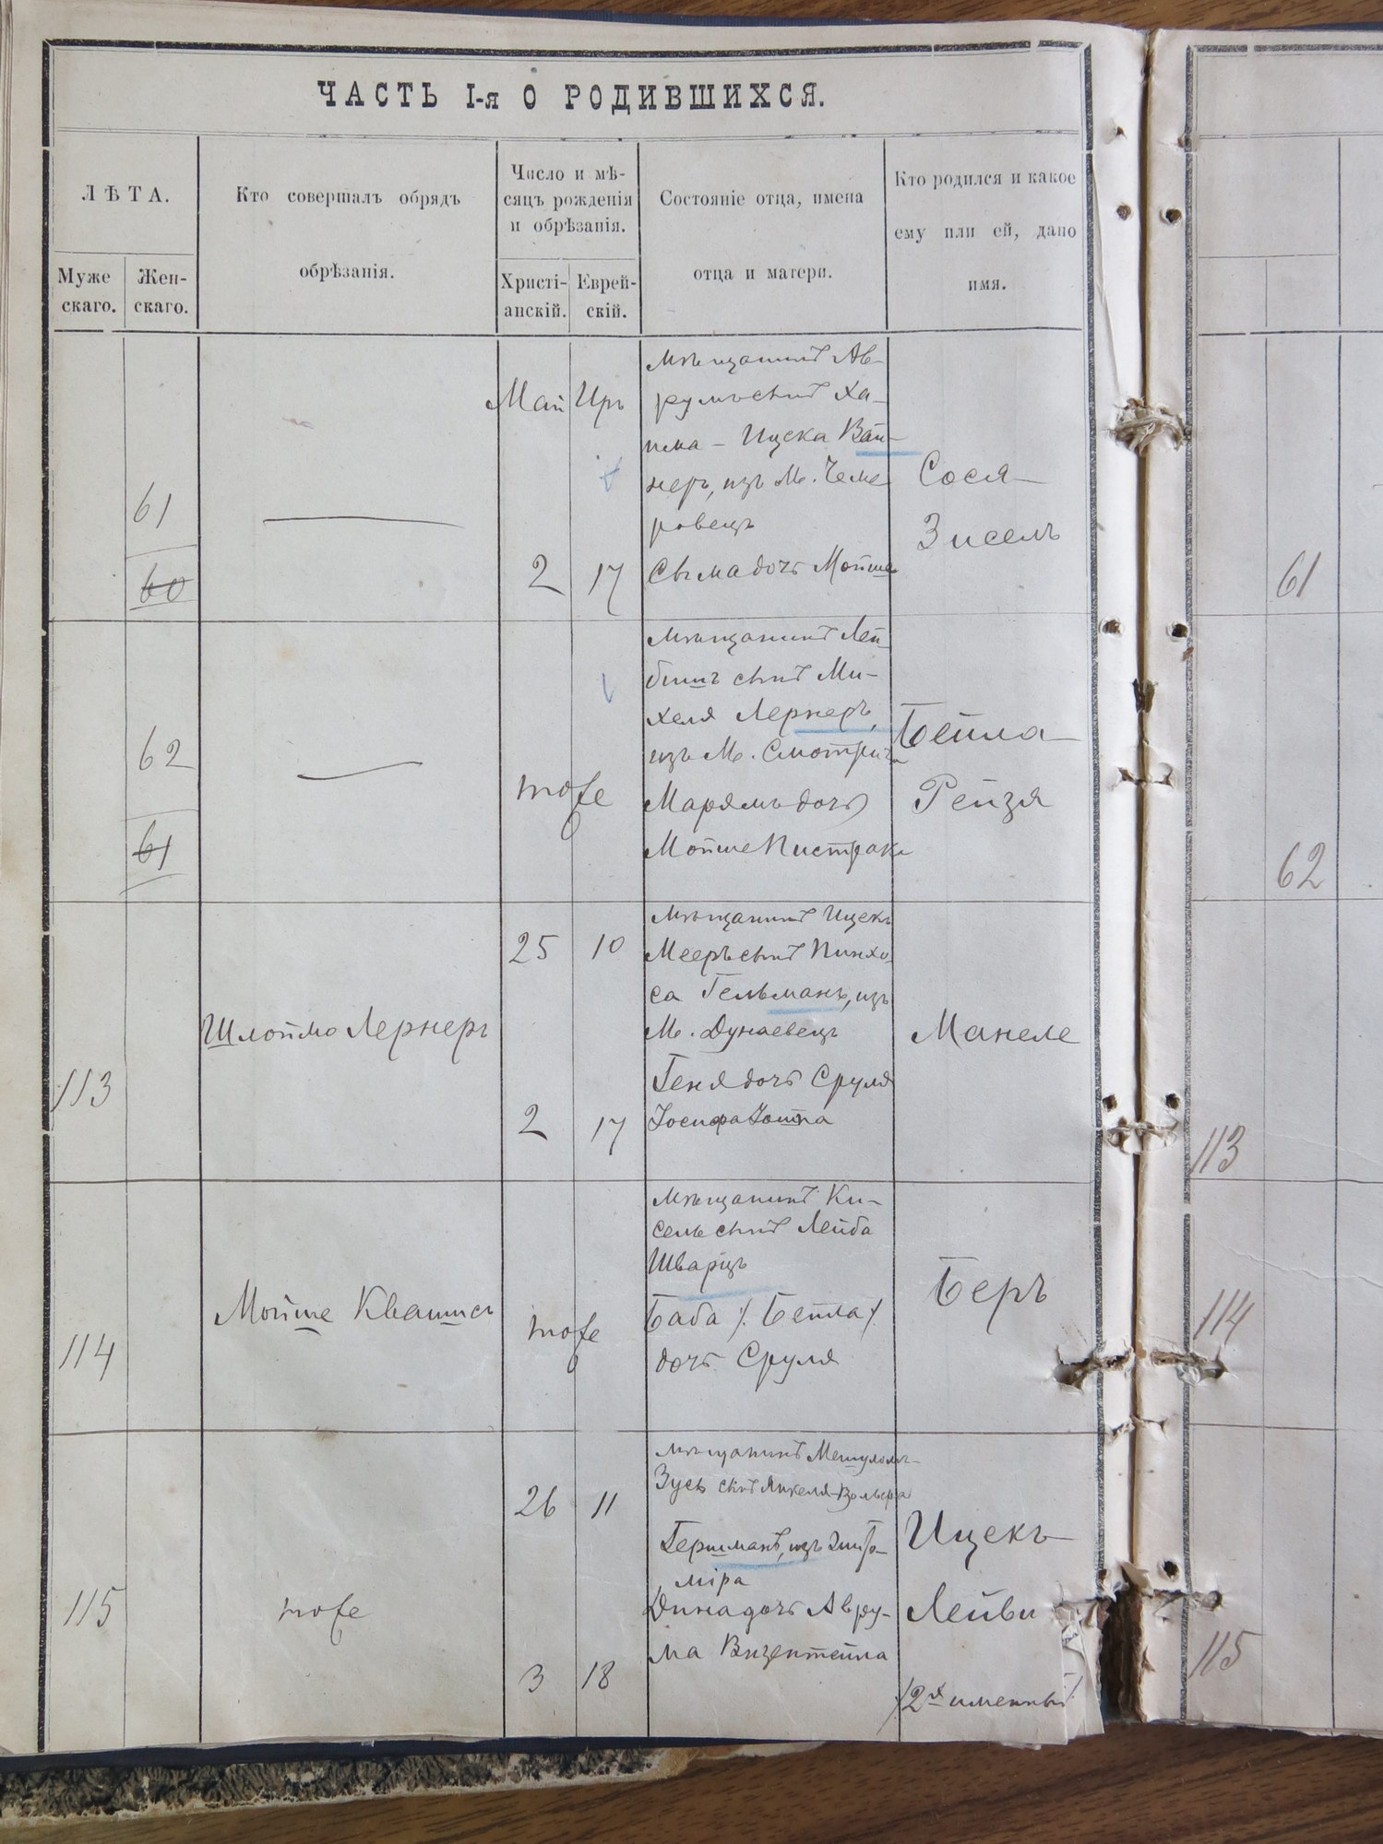 ЧАСТЬ I-я О РОДИВШИХСЯ.
ЛѢТА.
Муже
скаго.
Жен-
скаго.
Кто совершалъ обрядъ
обрѣзанія.
Число и мѣ-
сяцъ рожденія
и обрѣзанія.
Христі-
анскій.
Еврей-
скій.
Состояніе отца, имена
отца и матери.
Кто родился и какое
ему или ей, дано
имя.
61
60
Май Иръ
2 17
мѣщанинъ Ав-
румъ сынъ Ха-
има - Ицека Вай-
неръ, изъ М. Чеме
ровецъ
Сыма дочь Мойше
Сося
Зисель
61
62
61
тоже
мѣщанинъ Лей
бишъ сынъ Ми-
хеля Лернеръ,
изъ М. Смотрича
Марямъ дочь
Мойше Пистрака
Бейла
Рейзя
62
113
Шлоймо Лернеръ
25 10
2 17
мѣщанинъ Ицекъ
Мееръ сынъ Пинхо-
са Гельманъ, изъ
М. Дунаевецъ
Геня дочь Сруля
Манеле
113
114
Мойше
тоже
мѣщанинъ Ки-
сель сынъ Лейба
Шварцъ
Баба /. Бейла /.
дочь Сруля
Беръ
114
115
тоже
26 11
3 18
мѣщанинъ Мешуломъ-
Зусь сынъ Янкеля-Вольфа
Гершманъ, изъ
міра
Дина дочь Авру-
ма
Ицекъ
Лейви
/2х именный/.
115